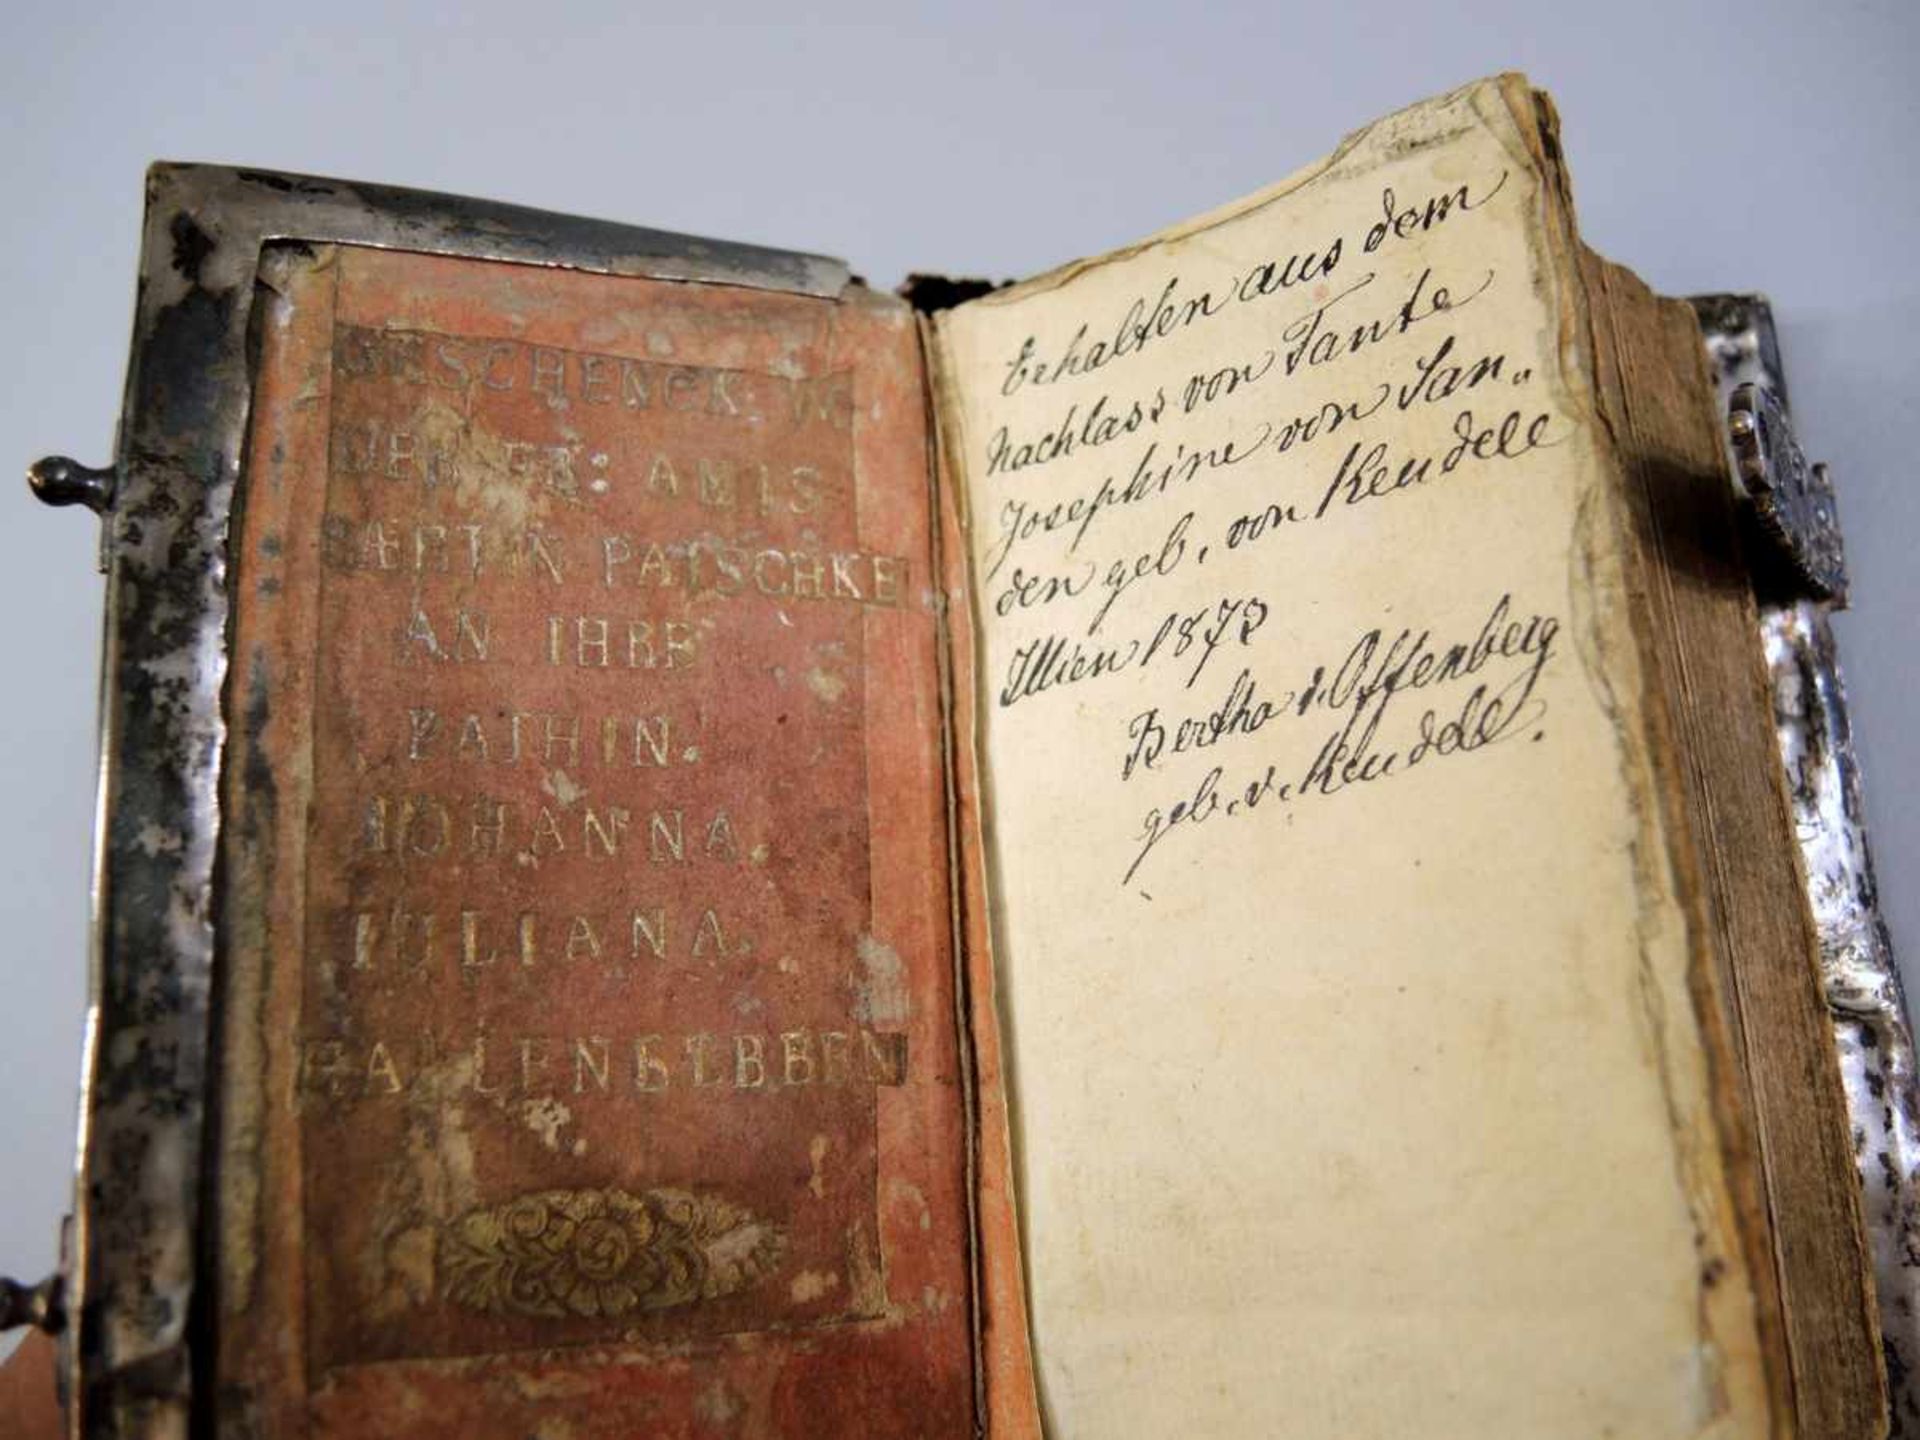 GESCHENCK
AMTS
PATSCHKE
AN IHRE
PATHIN.
IOHANNA.
IULIANA.
Erhalten aus dem
Nachlass von Tante
Josephine von San„
den geb. von Keudell
Illien 1873
Bertha v. Offenberg
geb. v. Keudell.